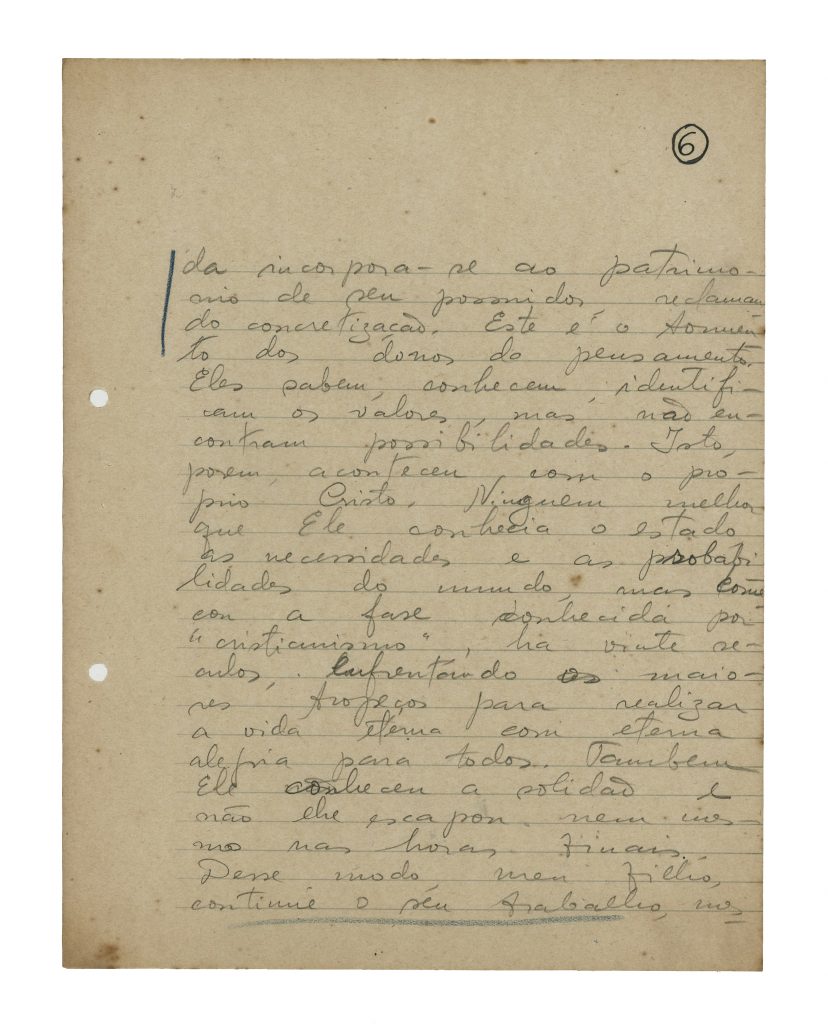 6
da incorpora-se ao patrimo-
nio de seu possuidor, reclaman
do concretização. Este é o tormen
to dos donos do pensamento.
Eles sabem, conhecem, identifi-
cam os valores, mas não en-
contram possibilidades. Isto,
porem, aconteceu com o pro-
prio Cristo. Ninguem melhor
que Ele conhecia o estado
as necessidades e as probabi
lidades do mundo, mas come
cou a fase conhecida por
"cristianismo", ha vinte se-
culos, enfrentando os maio-
res tropeços para realizar
a vida eterna com eterna
alegria para todos. Tambem
Ele conheceu a solidão e
não lhe escapou nem mes-
mo nas horas finais.
Desse modo, meu filho,
continue o seu trabalho, mes